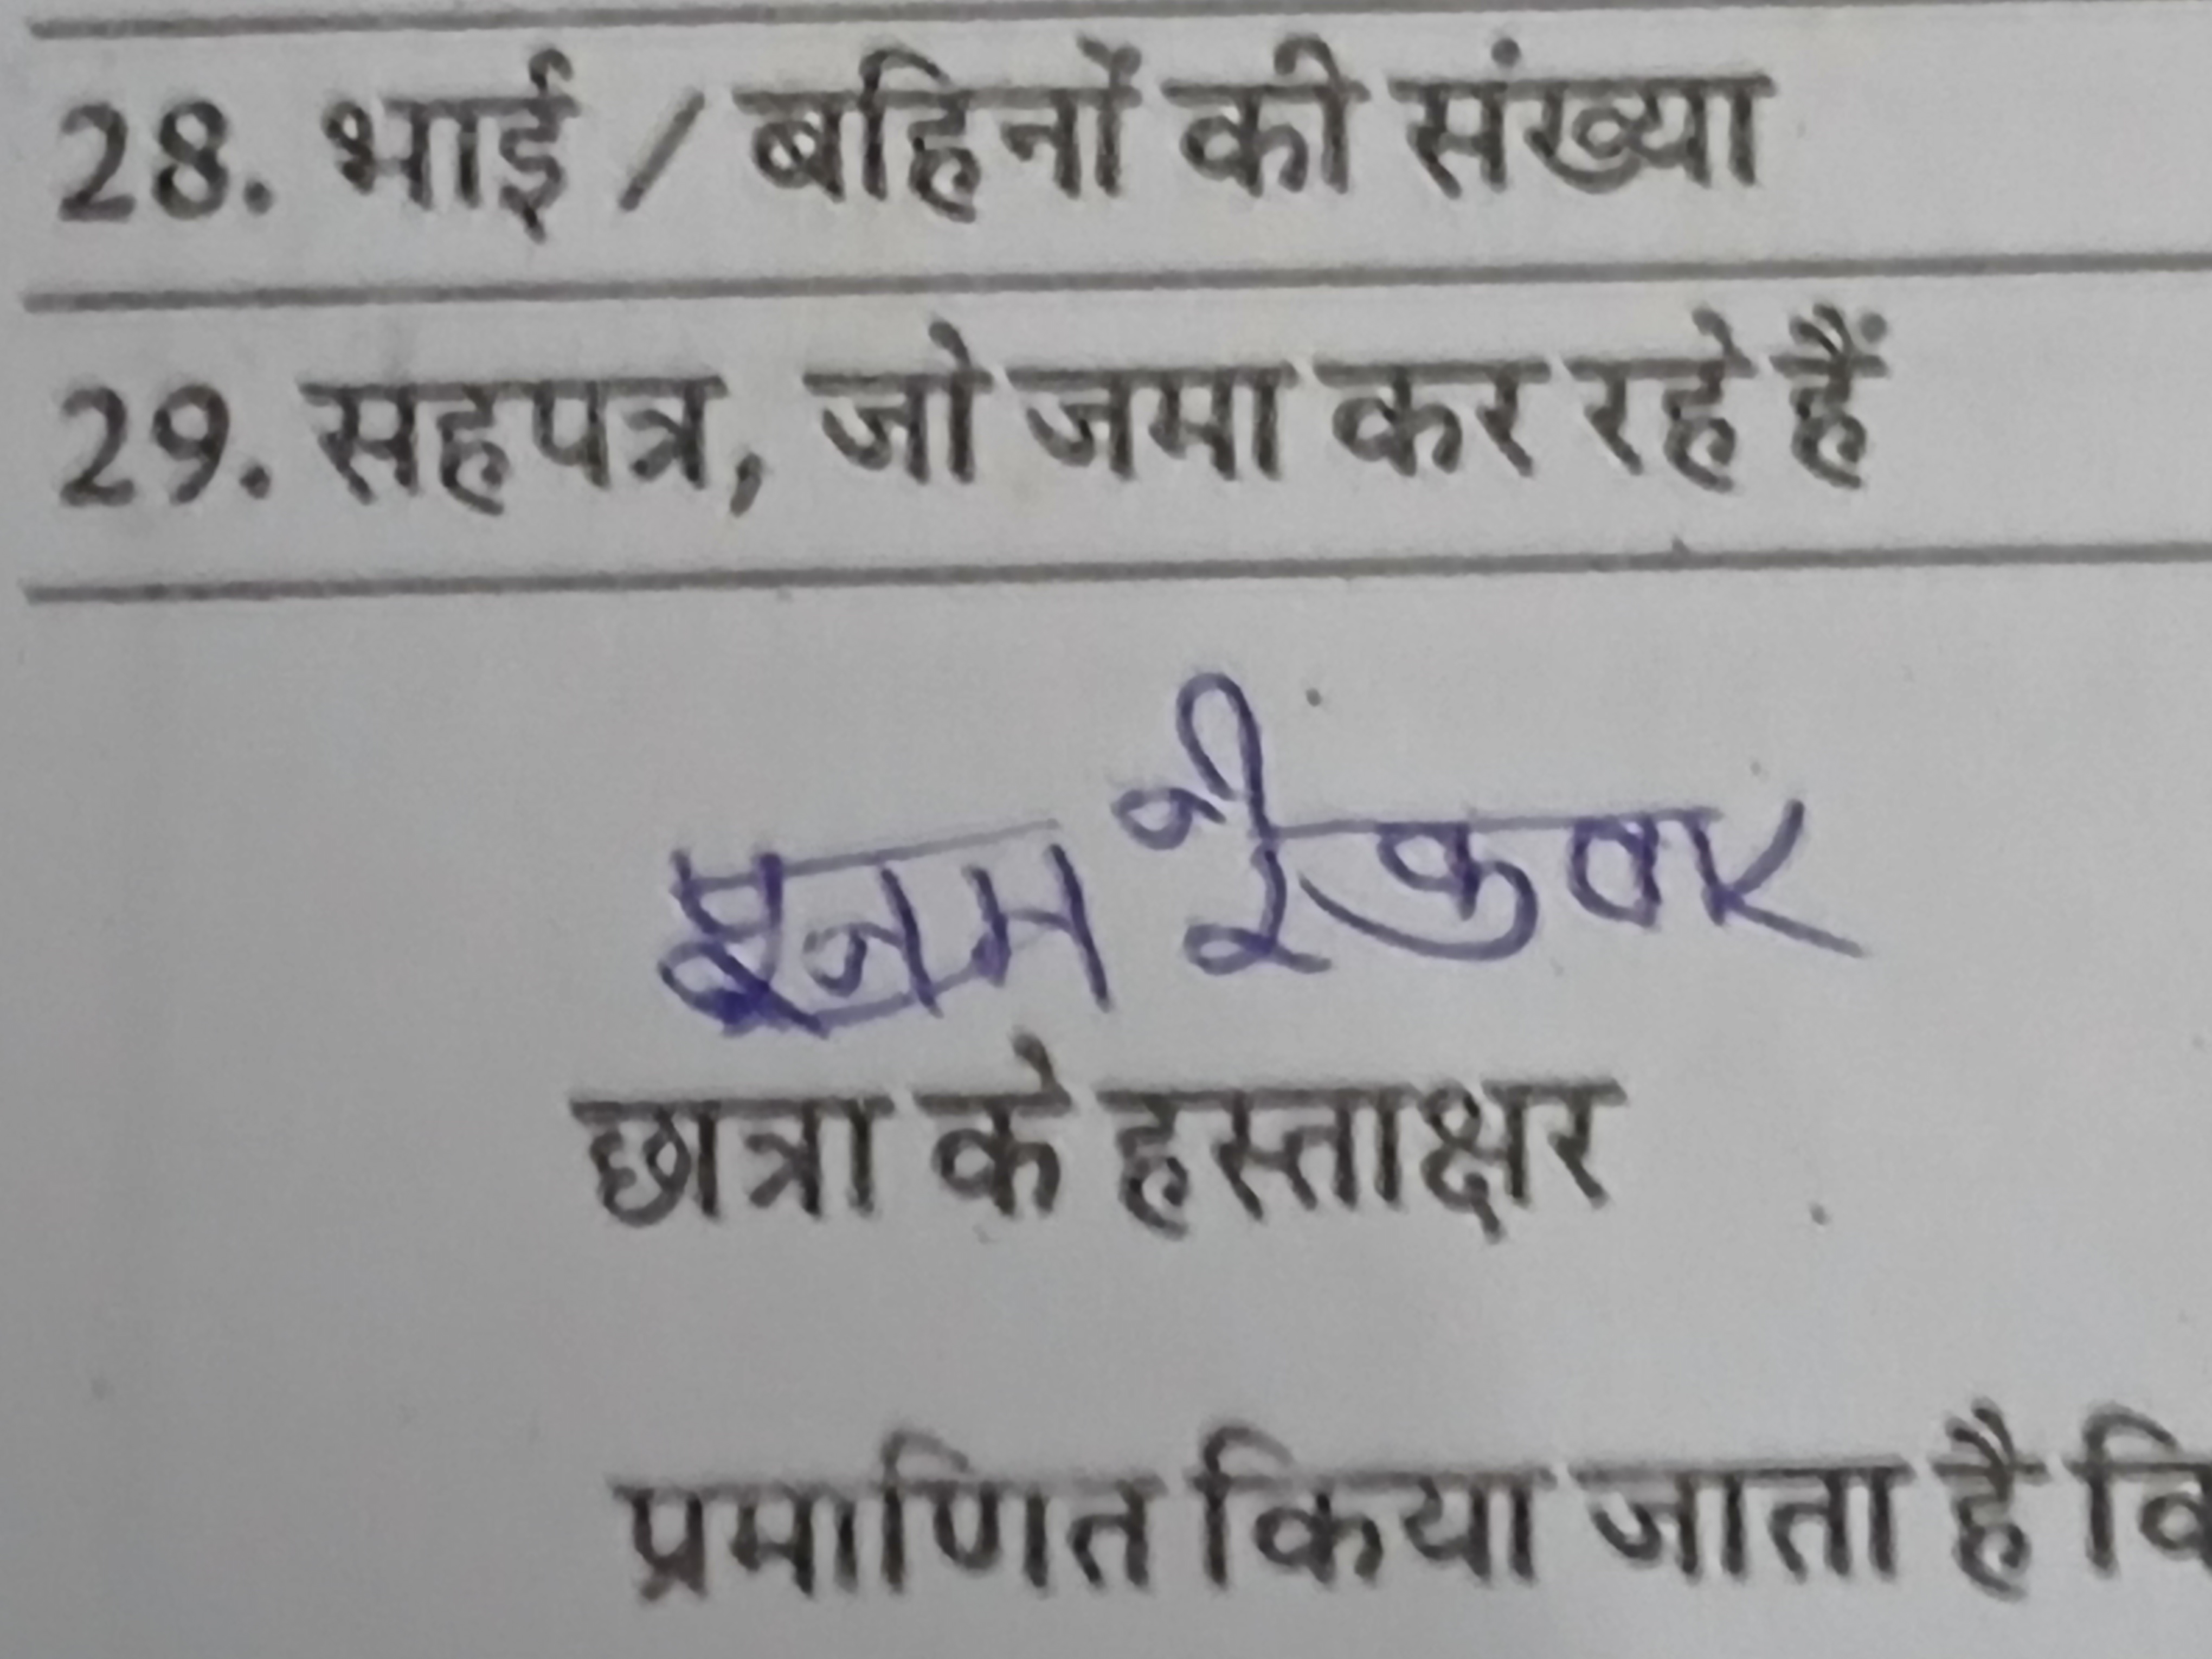 28. भाई / बहिनों की संख्या
29. सहपत्र, जो जमा कर रहे हैं
पूनम कुवर
छात्रा के हस्ताक्षर
प्रमाणित किया जाता है कि